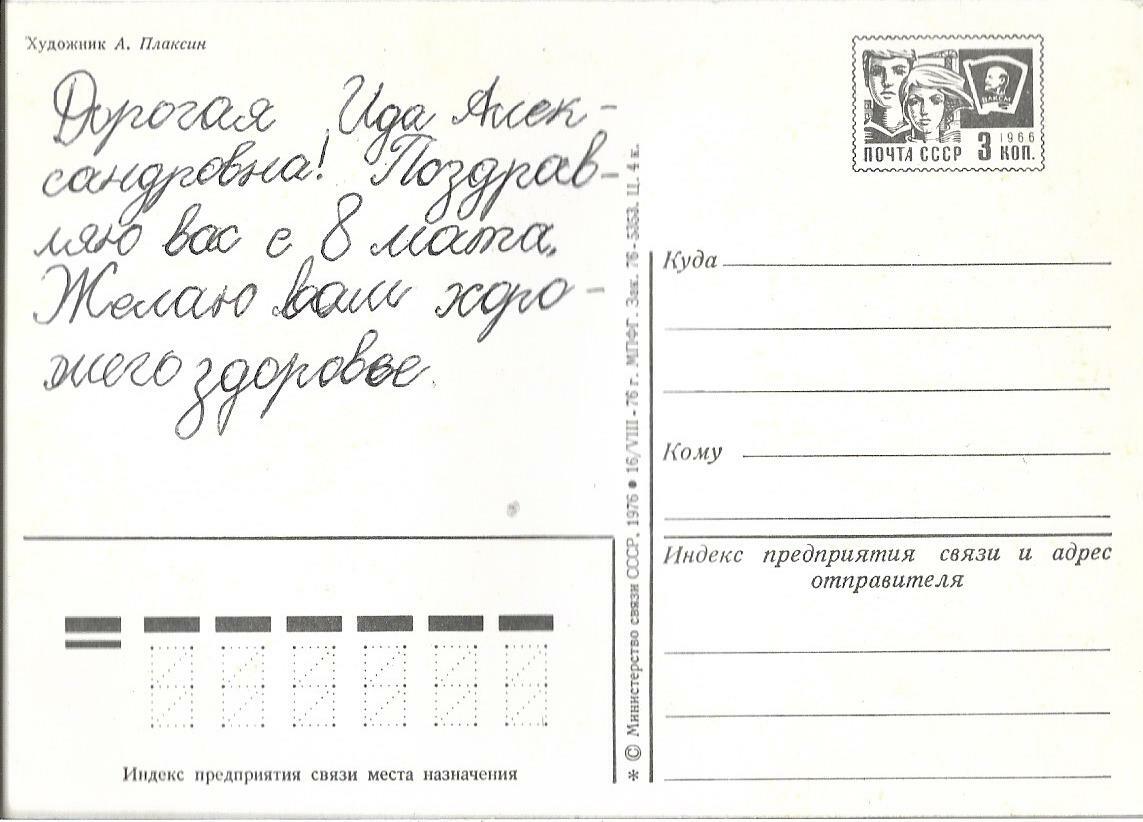 Художник А. Плаксин
Дорогая Ида Алек-
сандровна! Поздрав-
ляю вас с 8 мата.
Желаю вам хоро-
шего здоровье.
ВЛКСМ
1966
ПОЧТА СССР 3 КОП.
Куда
Кому
Индекс предприятия связи и адрес
отправителя
* © Министерство связи СССР, 1976 ● 16/VIII - 76 г. МПФГ. Зак. 76 - 5353. Ц. 4 к.
Индекс предприятия связи места назначения